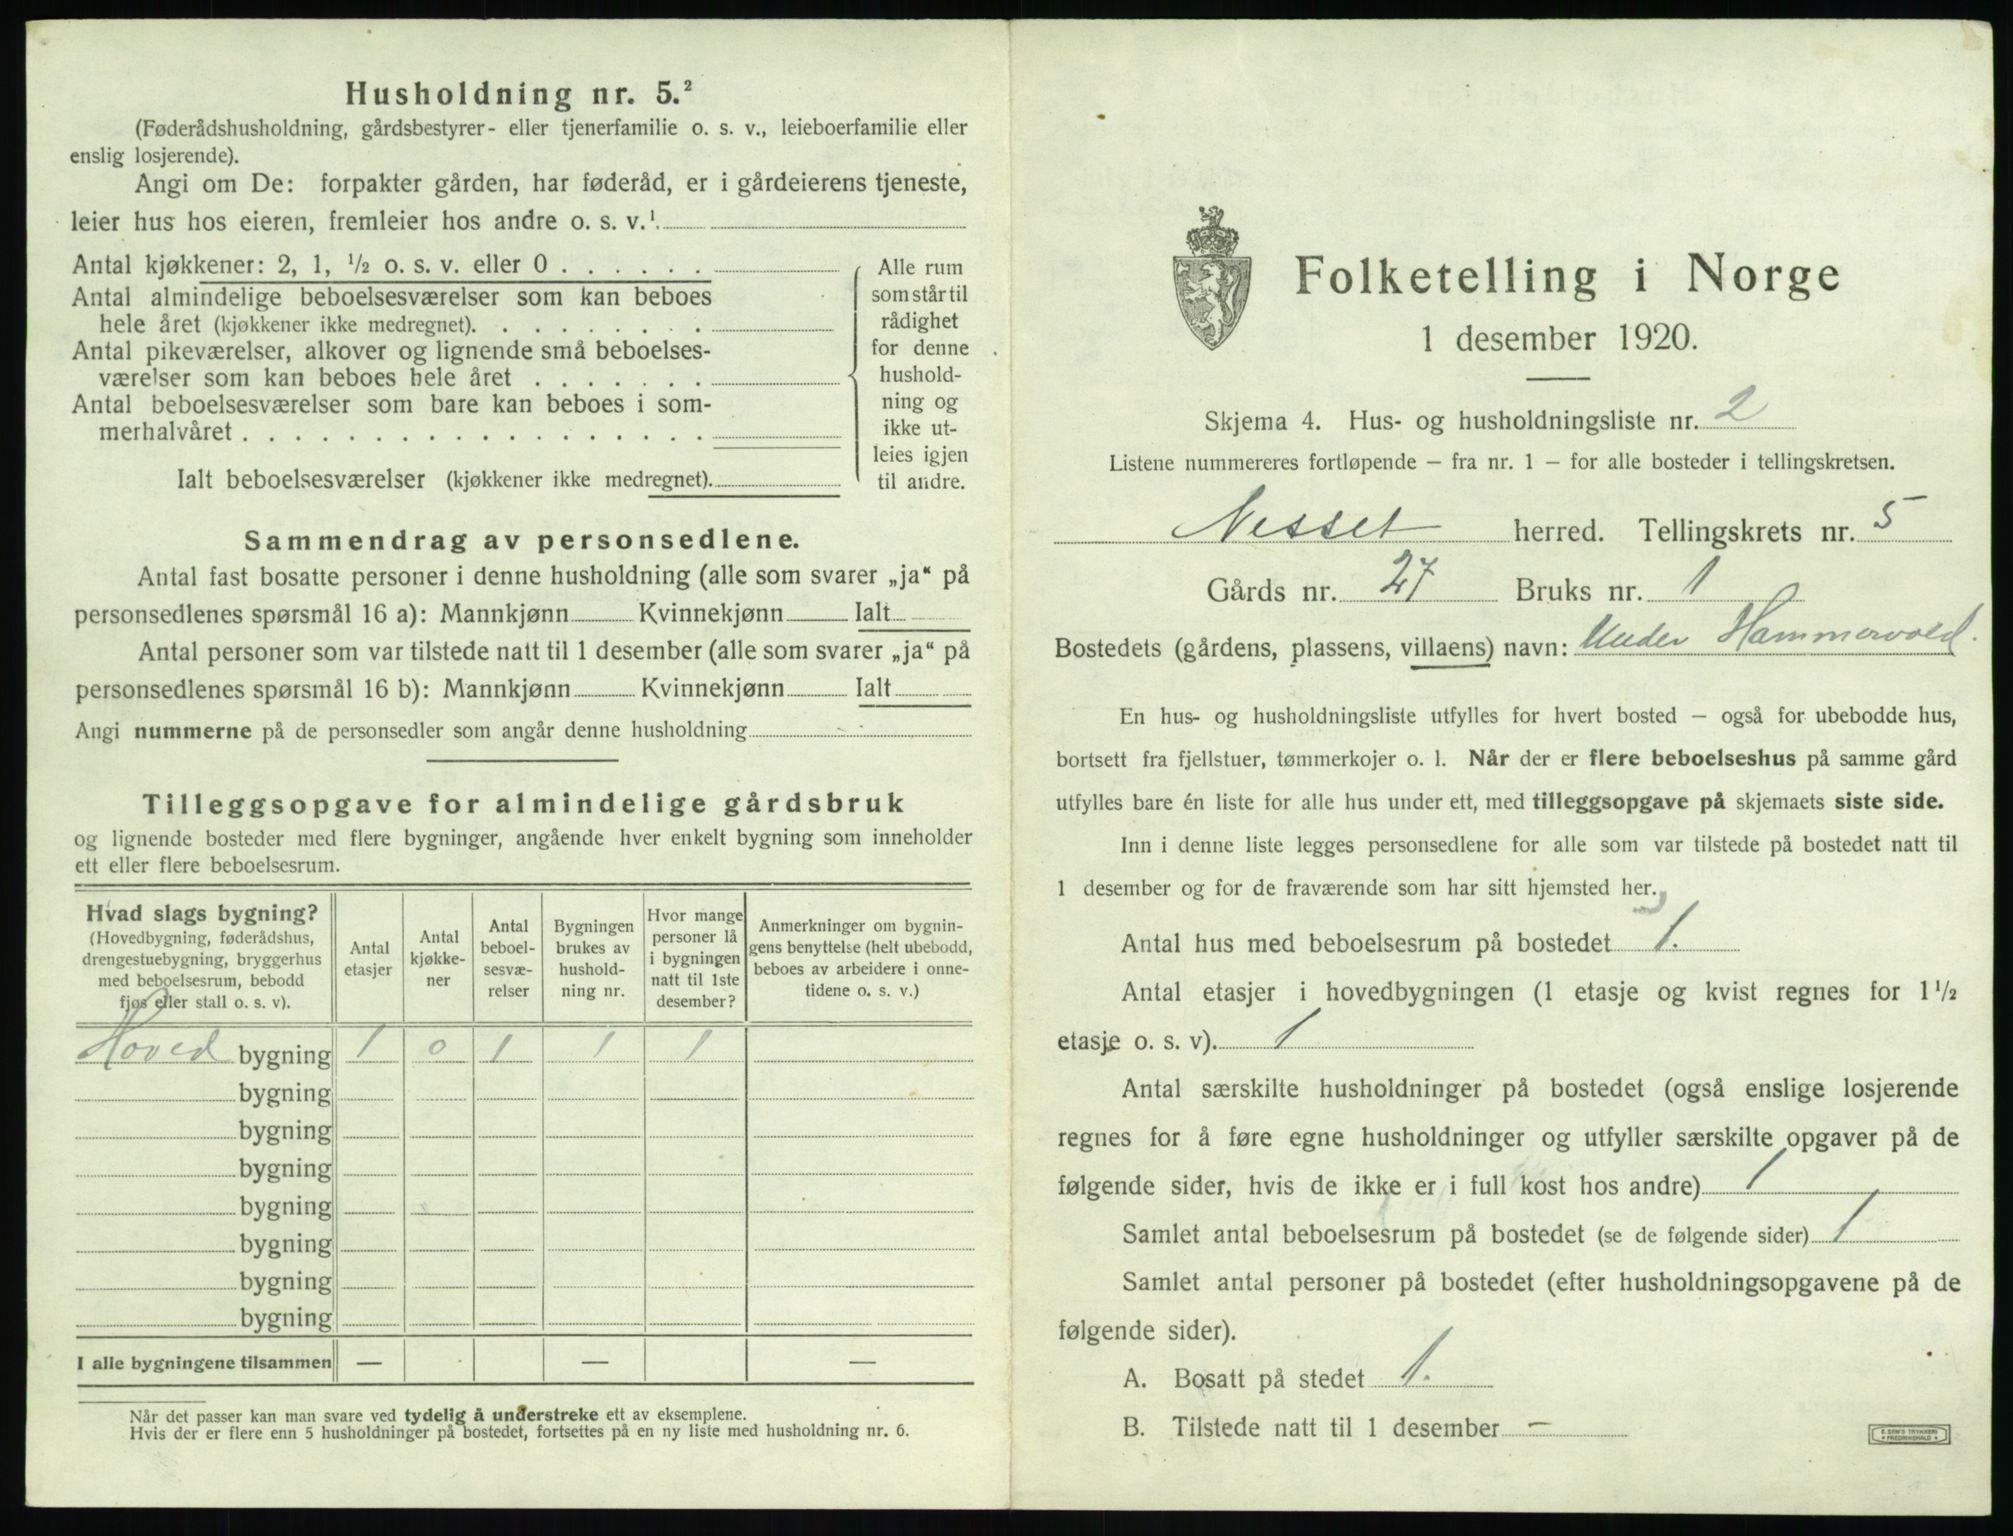 Husholdning nr. 5.²
(Føderådshusholdning, gårdsbestyrer- eller tjenerfamilie o. s. v., leieboerfamilie eller
enslig losjerende).
Angi om De: forpakter gården, har føderåd, er i gårdeierens tjeneste,
leier hus hos eieren, fremleier hos andre o. s. v.¹
Antal kjøkkener: 2, 1, ½ o. s. v. eller 0 . . . . . .
Antal almindelige beboelsesværelser som kan beboes
hele året (kjøkkener ikke medregnet). . . . . . . . .
Antal pikeværelser, alkover og lignende små beboelses-
værelser som kan beboes hele året . . . . . . .
Antal beboelsesværelser som bare kan beboes i som-
merhalvåret . . . . . . . . . . . . . . . . . .
Ialt beboelsesværelser (kjøkkener ikke medregnet).
Alle rum
som står til
rådighet
for denne
hushold-
ning og
ikke ut-
leies igjen
til andre.
Sammendrag av personsedlene.
Antal fast bosatte personer i denne husholdning (alle som svarer „ja“ på
personsedlenes spørsmål 16 a): Mannkjønn Kvinnekjønn Ialt
Antal personer som var tilstede natt til 1 desember (alle som svarer „ja“ på
personsedlenes spørsmål 16 b): Mannkjønn Kvinnekjønn Ialt
Angi nummerne på de personsedler som angår denne husholdning
Tilleggsopgave for almindelige gårdsbruk
og lignende bosteder med flere bygninger, angående hver enkelt bygning som inneholder
ett eller flere beboelsesrum.
Hvad slags bygning?
(Hovedbygning, føderådshus,
drengestuebygning, bryggerhus
med beboelsesrum, bebodd
fjøs eller stall o. s. v).
Antal
etasjer
Antal
kjøkke-
ner
Antal
beboel-
sesvæ-
relser
Bygningen
brukes av
hushold-
ning nr.
Hvor mange
personer lå
i bygningen
natt til 1ste
desember?
Anmerkninger om bygnin-
gens benyttelse (helt ubebodd,
beboes av arbeidere i onne-
tidene o. s. v.)
Hoved bygning 1 0 1 1 1
bygning
bygning
bygning
bygning
bygning
bygning
bygning
I alle bygningene tilsammen — — —
Når det passer kan man svare ved tydelig å understreke ett av eksemplene.
Hvis der er flere enn 5 husholdninger på bostedet, fortsettes på en ny liste med husholdning nr. 6.
Folketelling i Norge
1 desember 1920.
Skjema 4. Hus- og husholdningsliste nr. 2
Listene nummereres fortløpende – fra nr. 1 – for alle bosteder i tellingskretsen.
Nesset herred. Tellingskrets nr. 5
Gårds nr. 27 Bruks nr. 1
Bostedets (gårdens, plassens, villaens) navn: Under Hammervold.
En hus- og husholdningsliste utfylles for hvert bosted – også for ubebodde hus,
bortsett fra fjellstuer, tømmerkojer o. l. Når der er flere beboelseshus på samme gård
utfylles bare én liste for alle hus under ett, med tilleggsopgave på skjemaets siste side.
Inn i denne liste legges personsedlene for alle som var tilstede på bostedet natt til
1 desember og for de fraværende som har sitt hjemsted her.
Antal hus med beboelsesrum på bostedet 1.
Antal etasjer i hovedbygningen (1 etasje og kvist regnes for 1½
etasje o. s. v). 1
Antal særskilte husholdninger på bostedet (også enslige losjerende
regnes for å føre egne husholdninger og utfyller særskilte opgaver på de
følgende sider, hvis de ikke er i full kost hos andre) 1
Samlet antal beboelsesrum på bostedet (se de følgende sider) 1
Samlet antal personer på bostedet (efter husholdningsopgavene på de
følgende sider).
A. Bosatt på stedet 1.
B. Tilstede natt til 1 desember –
E. SEM'S TRYKKERI
• FREDRIKSHALD •